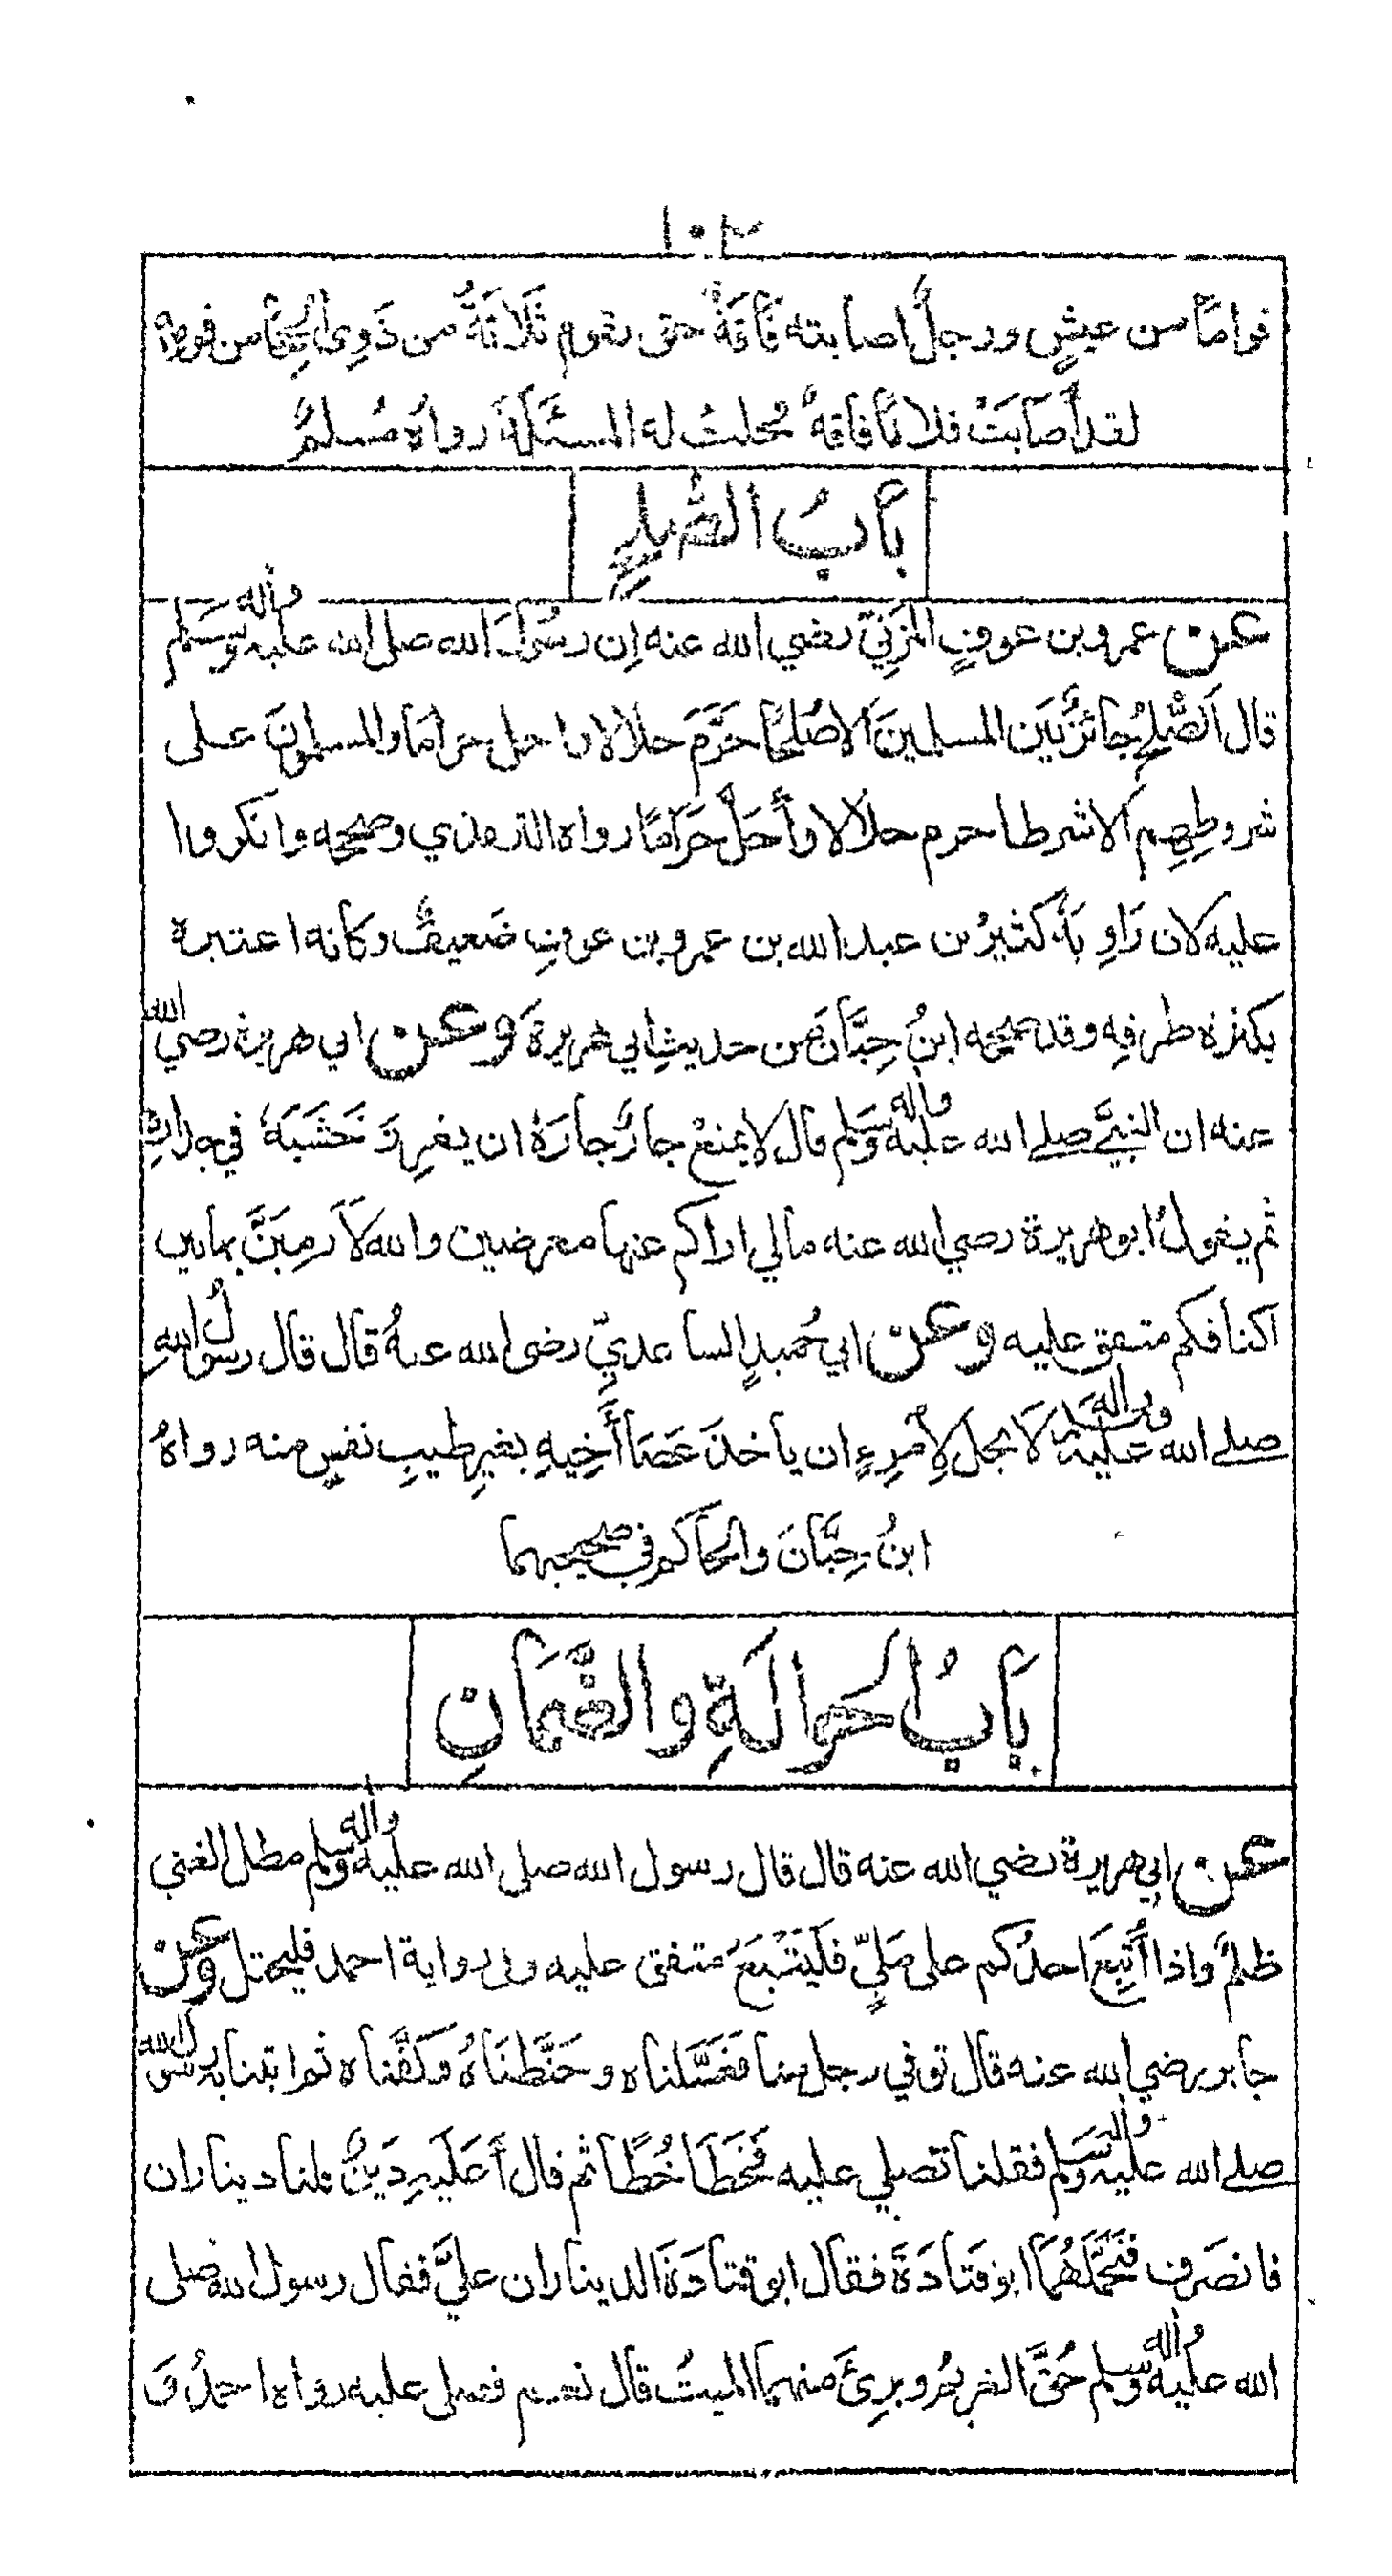 ١٠٢
قواماً من عيشٍ ورجلٌ اصابته فَاقَةٌ حتى يقوم ثَلَاثَةٌ من ذَوِي الحِجَا من قومه
لقد أصَابَتْ فلانًا فاقةٌ فحلت له المسئَلَةُ رواهُ مُسلمٌ
بَابُ الصُّلحِ
عن عمرو بن عوفٍ المُزَنِيّ رضي الله عنه اِن رسُولَ الله صلى الله عليه وآله وسَلم
قال اَلصُّلحُ جائزٌ بَين المسلمينَ الا صُلحًا حَرَّمَ حلالا او احل حراما والمسلمونَ على
شروطِهِم الا شرطا حرم حلالا وأَحَلَّ حَرَامًا رواه الترمذي وصححه وانكروا
عليه لان رَاوِيَهُ كثيرُ بن عبد الله بن عمرو بن عوفٍ ضَعيفٌ وكانه اعتبرة
بكثرة طرقِه وقد صححه ابنُ حِبَّانَ من حديثِ ابي هُريرةَ وعن ابي هريرة رضي الله
عنه ان النبيَّ صلے الله عليه وآله وسَلم قال لا يمنعْ جارٌ جارَهُ ان يغرِزَ خَشَبَةً في جدارِهِ
ثم يقولُ ابو هريرة رضي الله عنه مالي اراكم عنها معرضين والله لاَرمِيَنَّ بها بين
اكتافكم متفق عليه وعن ابي حُميدٍ الساعديِّ رضي الله عنهُ قال قال رسولُ اللهِ
صلے الله عليه وآله وسلم لَا يحل لِامرِءٍ ان ياخذَ عَصَا أَخِيهِ بغيرِ طيبِ نفسٍ منه رواهُ
ابنُ حِبَّانَ والحاكم في صحيحيهما
بَابُ الحوالَةِ والضَّمَانِ
عن ابي هريرة رضي الله عنه قال قال رسول الله صلى الله عليه وآله وسلم مطل الغني
ظلمٌ واذا أُتبِعَ احدُكم على مَلِيٍّ فَليَتْبَعْ متفق عليه وفي رواية احمد فليحتل وعن
جابر رضي الله عنه قال توفي رجل منا فغسَّلناه وحَنَّطنَاهُ وكَفَّناه ثم اتينا به رسولَ الله
صلے الله عليه وآله وسَلم فقلنا تصلي عليه فَخَطَا خُطًا ثم قال أَعَلَيهِ دَينٌ قلنا ديناران
فانصَرف فتَحَمَّلَهُمَا ابو قَتَادَةَ فقال ابو قتادَةَ الديناران عليَّ فقال رسول الله صلى
الله عليه وآله وسلم حُقَّ الغريمُ وبرِئَ منهما الميتُ قال نعم فصلى عليه رواه احمدُ وَ